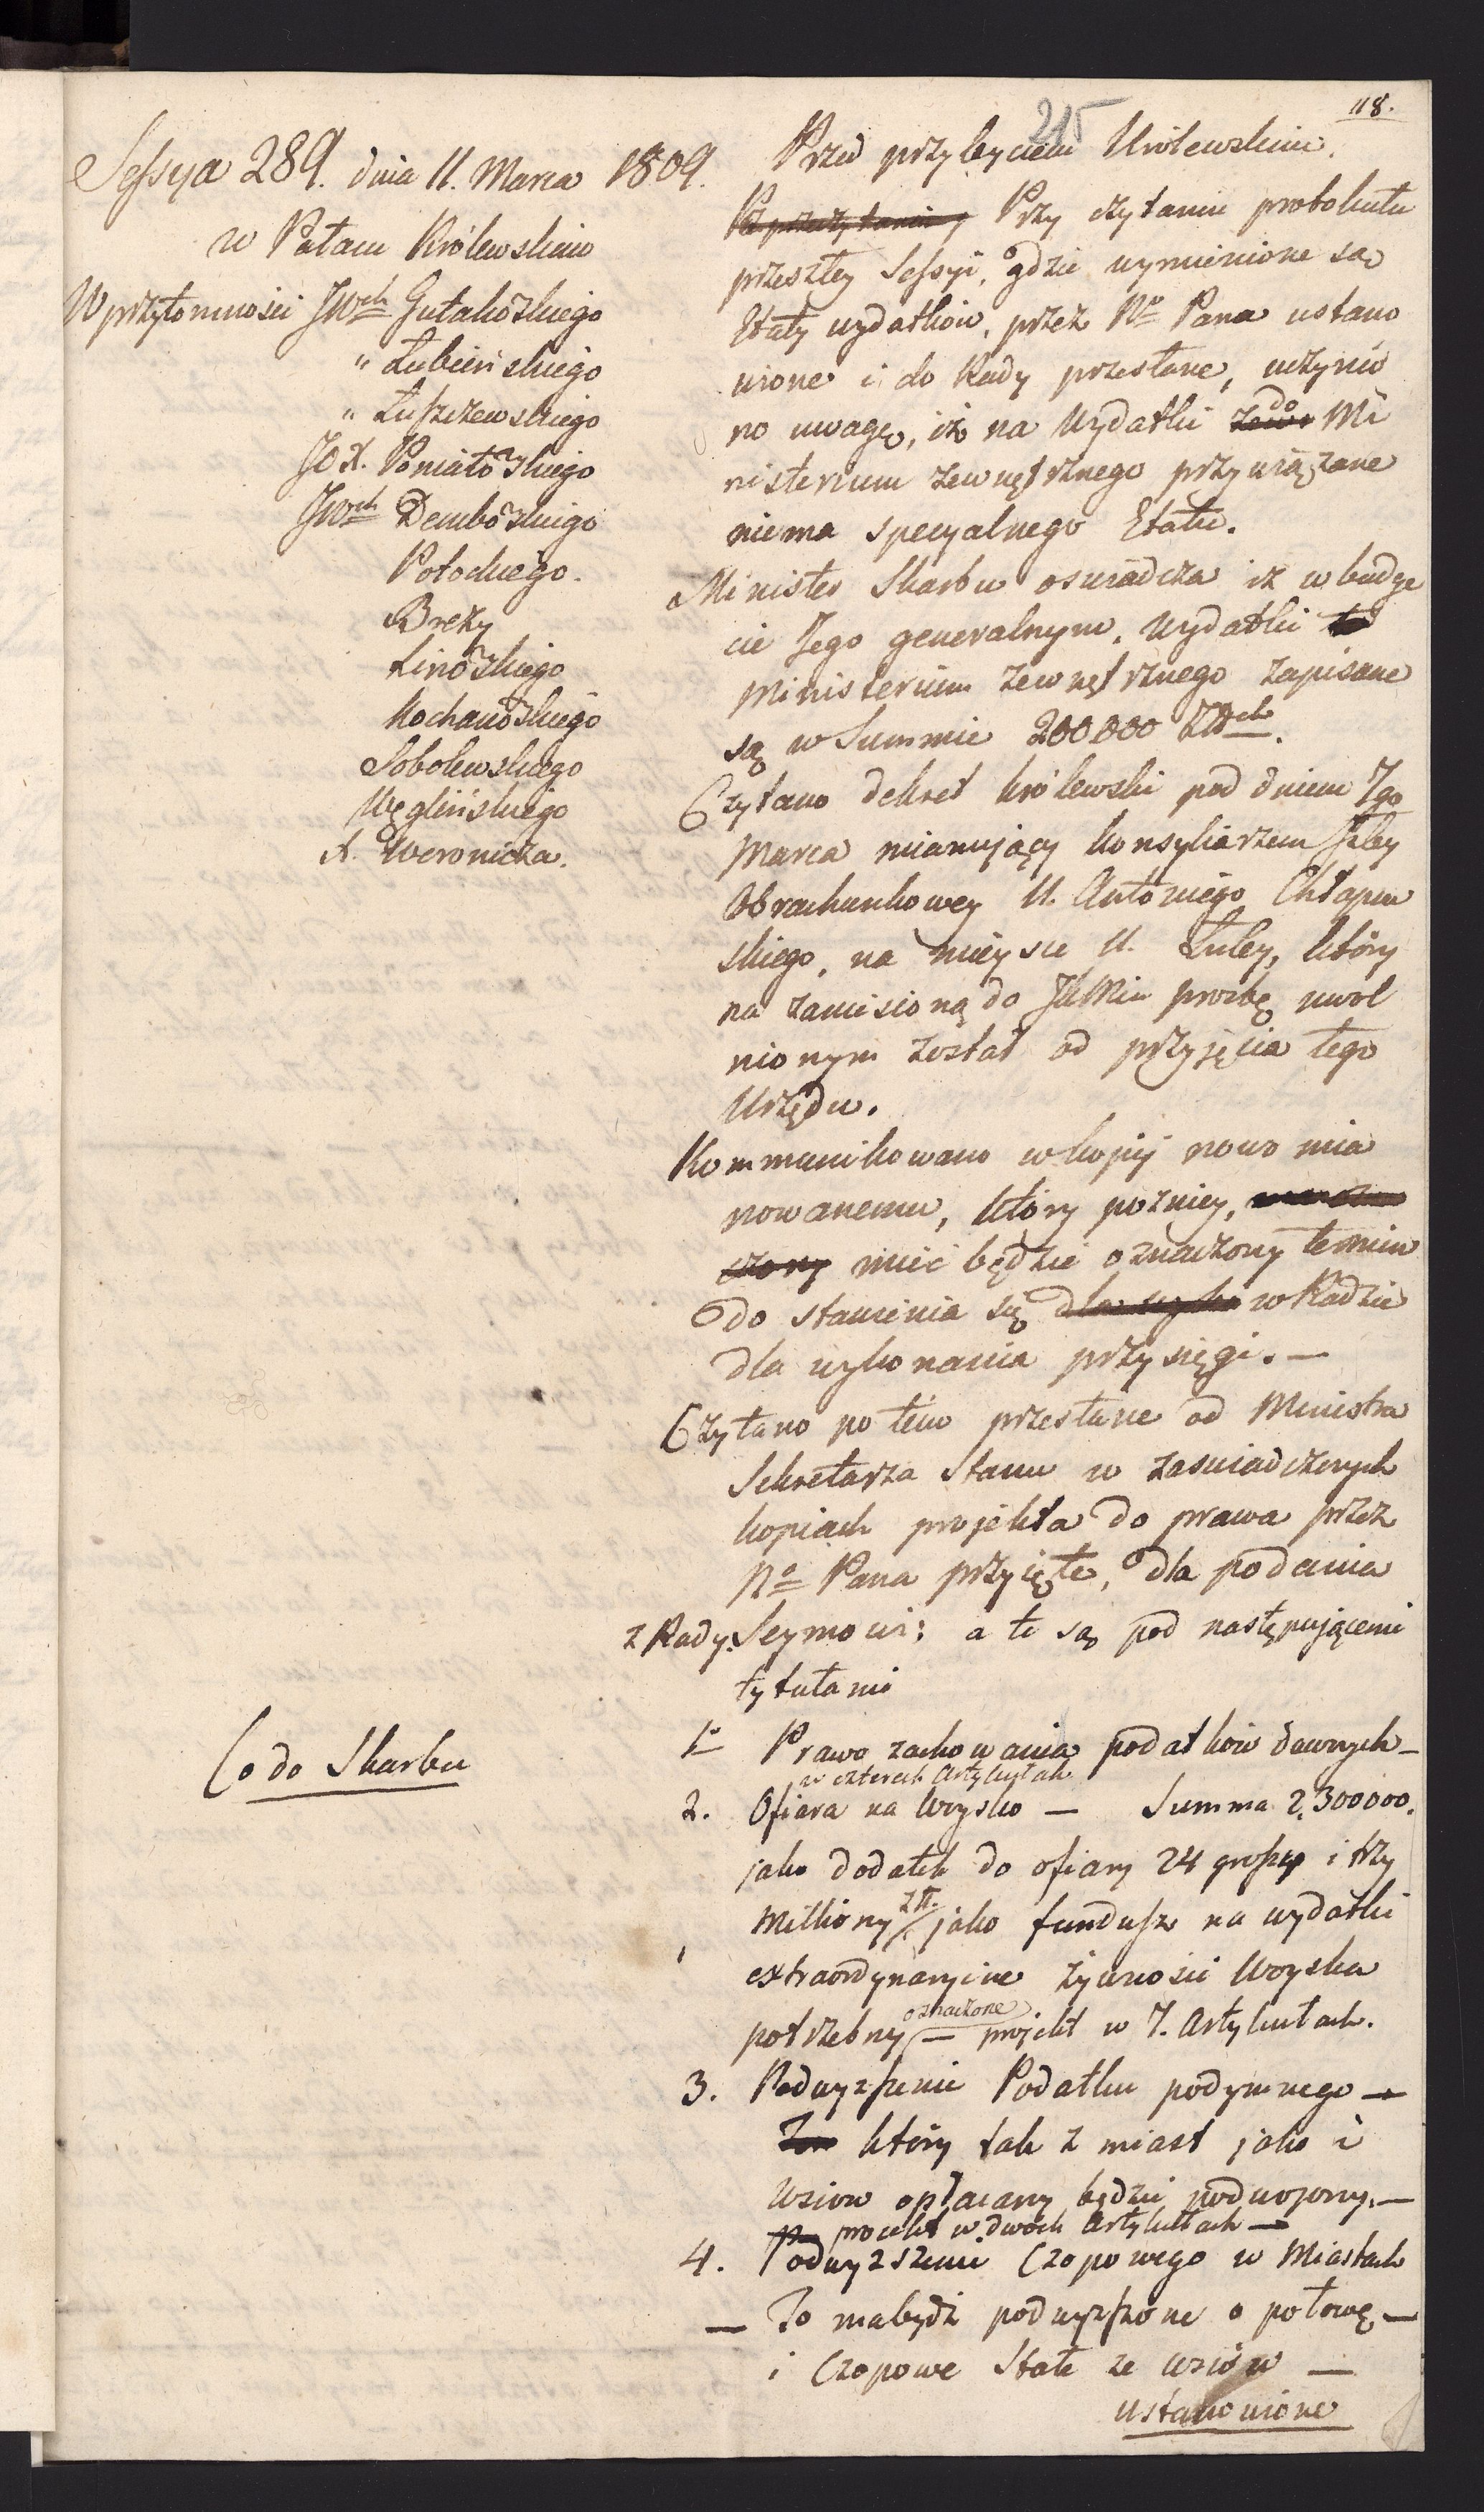 118.
215
Sessya 289. dnia 11. Marca 1809.
w Pałacu Królewskim
W przytomności JWch Gutakowskiego
" Łubieńskiego
" Łuszczewskiego
JO X. Poniatowskiego
JWch Dembowskiego
Potockiego.
Brezy
Linowskiego
Kochanowskiego
Sobolewskiego
Węglińskiego
X. Woronicza.
Co do Skarbu
Przed przybyciem Królewskim.
Po przeczytaniu Przy czytaniu protokułu
przeszłey Sessyi, gdzie wymienione są
Etaty wydatków, przezNo Pana ustano
wione i do Rady przesłane, uczynio
no uwagę, iż na Wydatki do Mi
nisterium zewnętrznego przywiązane
niema specyalnego Etatu.
Minister Skarbu oswiadcza iż w budge
cie Jego generalnym, wydatki
Ministerium zewnętrznego zapisane
są w Summie 200000 Złch.
Czytano dekret królewski pod dniem 7go
Marca mianujący Konsyliarzem Izby
Obrachunkowey U. Antoniego Chłapow
skiego, na mieysce U. Łubey, który
na zaniesioną do JKMci prozbę uwol
nionym został od przyjęcia tego
Urzędu.
Kommunikowano w kopij nowo mia
nowanemu, który pozniey,
czony mieć będzie oznaczony termin
do stawienia się w Radzie
dla wykonania przysięgi. —
Czytano potém przesłane od Ministra
Sekretarza Stanu w zaswiadczonych
kopiach projekta do prawa przez
No Pana przyięte, dla podania
z Rady Seymowi: a te są pod następującemi
tytułami
1o Prawo zachowania podatków dawnych —
w czterech Artykułach
2. Ofiara na Woysko — Summa 2,300000.
jako dodatek do ofiary 24 groszy i trzy
Milliony zł. jako fundusz na wydatki
extraordynaryine żywności Woyska
potrzebny oznaczone — projekt w 7. Artykułach.
3. Podwyzszenie Podatku podymnego —
który tak z miast jako i
wsiow opłacany będzie podwojony. —
projekt w dwóch Artykułach —
4. Podwyzszenie Czopowego w Miastach
— To ma bydź podwyższone o połowę —
i Czopowe Stałe ze wsiów —
ustanowione